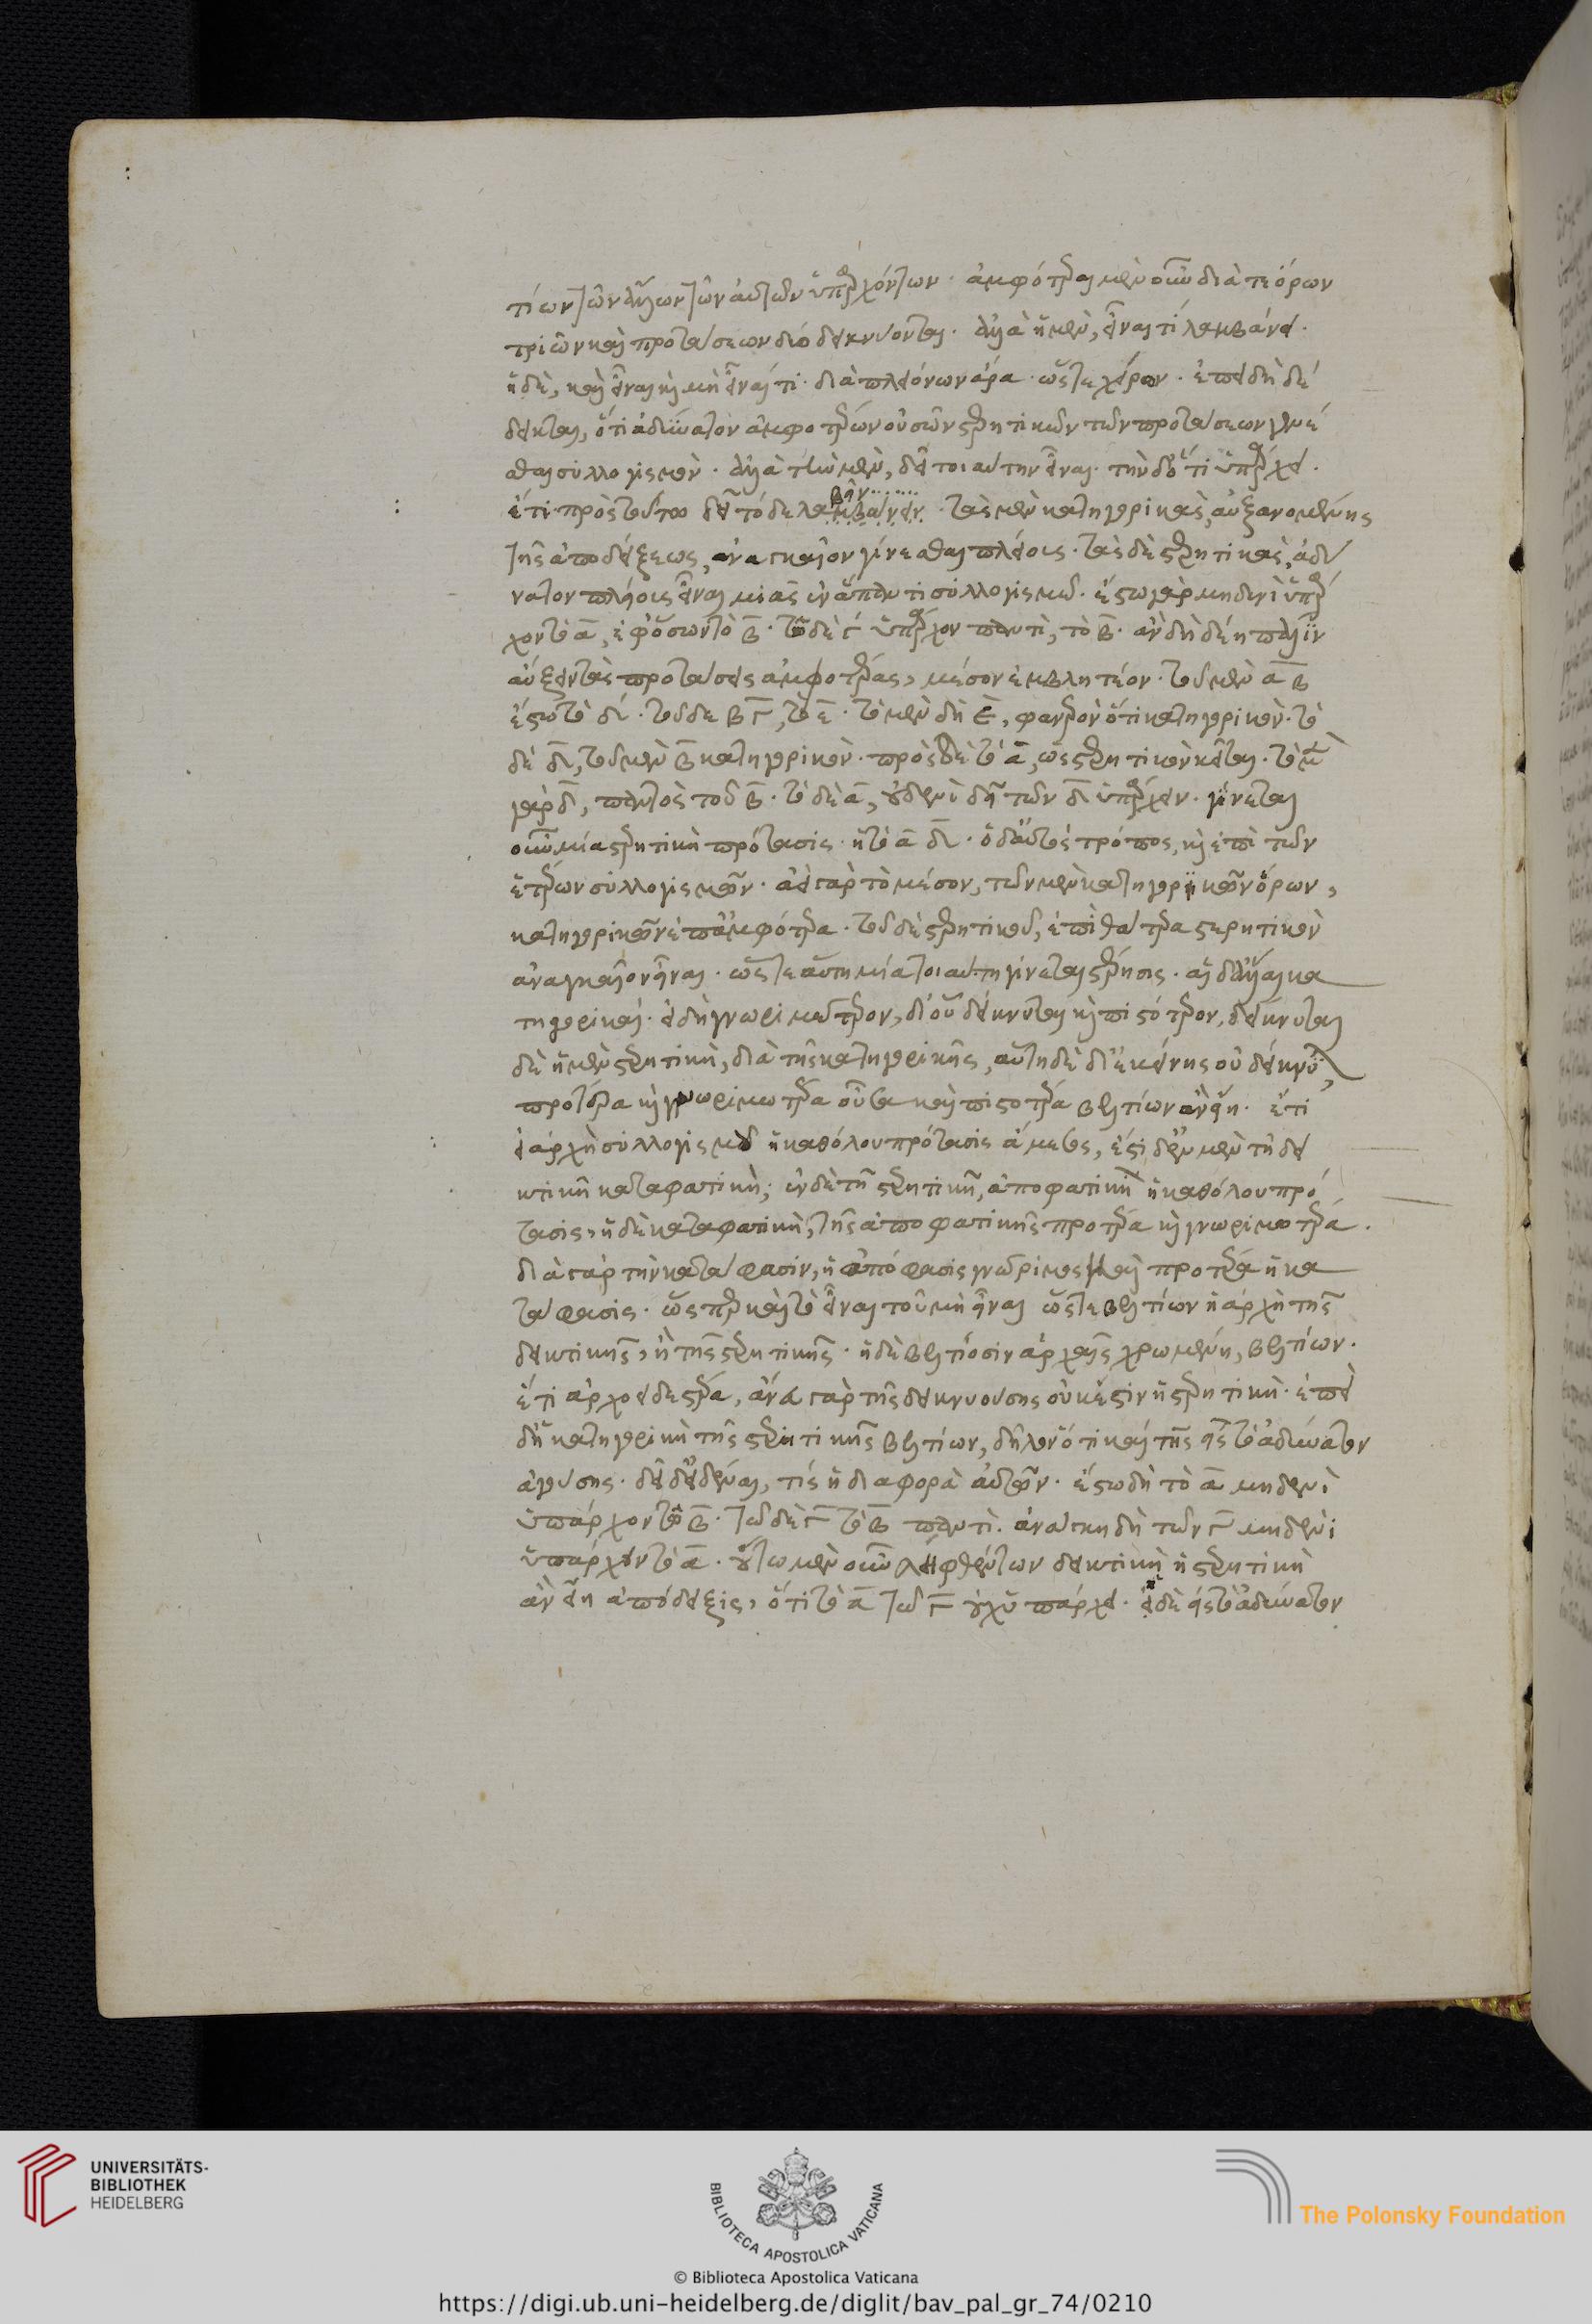 τίων τῶν ἄλλων τῶν αὐτῶν ὑπαρχόντων · ἀμφότεραι μὲν οὖν διά τε ὅρων
τριῶν καὶ προτάσεων δύο δεικνύονται · ἀλλὰ ἡ μὲν, εἶναι τί λαμβάνει ·
ἡ δὲ, καὶ εἶναι καὶ μὴ εἶναί τι · διὰ πλειόνων ἄρα · ὥστε χείρων · ἐπειδὴ δέ
δεικται, ὅτι ἀδύνατον ἀμφοτέρων οὐσῶν στερητικῶν τῶν προτάσεων γενέ
σθαι συλλογισμὸν · ἀλλὰ τὴν μὲν, δεῖ τοιαύτην εἶναι · τὴν δ' ὅτι ὑπάρχει ·
ἔτι πρὸς τούτω δεῖ τόδε λαμβάνειν βεῖν · τὰς μὲν κατηγορικὰς, αὐξανομένης
τῆς ἀποδείξεως, ἀναγκαῖον γίνεσθαι πλείους · τὰς δὲ στερητικὰς, ἀδύ
νατον πλείους εἶναι μιᾶς ἐν ἅπαντι συλλογισμῷ · ἔστω γὰρ μηδενὶ ὑπάρ
χον τὸ α, ἐφ' ὅσων τὸ β · τῶ δὲ γ ὑπάρχον παντὶ, τὸ β · ἂν δὴ δέη πάλιν
αὔξειν τὰς προτάσεις ἀμφοτέρας, μέσον ἐμβλητέον · τοῦ μὲν α β
ἔστω τὸ δ · τοῦ δε β γ, τὸ ε · τὸ μὲν δὴ ε, φανερὸν ὅτι κατηγορικὸν · τὸ
δὲ δ, τοῦ μὲν β κατηγορικὸν · πρὸς δὲ τὸ α, ὡς στερητικὸν κεῖται · τὸ μὲν
γὰρ δ, παντὸς τοῦ β · τὸ δὲ α, οὐδενὶ δεῖ τῶν δ ὑπάρχειν · γίνεται
οὖν μία στερητικὴ πρότασις · ἡ τὸ α δ · ὁ δ' αὐτὸς τρόπος, καὶ ἐπὶ τῶν
ἑτέρων συλλογισμῶν · ἀεὶ γὰρ τὸ μέσον, τῶν μὲν κατηγορικῶν ὅρων,
κατηγορικὸν ἐπ' ἀμφότερα · τοῦ δὲ στερητικοῦ, ἐπὶ θάτερα στερητικὸν
ἀναγκαῖον εἶναι · ὥστε αὕτη μία τοιαύτη γίνεται στέρησις · αἱ δ' ἄλλαι κα
τηγορικαί · εἰ δὴ γνωριμώτερον, δι' οὗ δείκνυται καὶ πιστότερον, δείκνυται
δὲ ἡ μὲν στερητικὴ, διὰ τῆς κατηγορικῆς, αὕτη δὲ δι' ἐκείνης οὐ δείκνυται,
προτέρα καὶ γνωριμωτέρα οὖσα καὶ πιστοτέρα βελτίων ἂν εἴη · ἔτι
εἰ ἀρχὴ συλλογισμοῦ ἡ καθόλου πρότασις ἄμεσος, ἔστι δ' ἐν μὲν τῇ δει
κτικῇ καταφατικὴ, ἐν δὲ τῇ στερητικῇ, ἀποφατικὴ ἡ καθόλου πρό
τασις, ἡ δὲ καταφατικὴ, τῆς ἀποφατικῆς προτέρα καὶ γνωριμωτέρα ·
διὰ γὰρ τὴν κατάφασιν, ἡ ἀπόφασις γνώριμος καὶ προτέρα ἡ κα
τάφασις · ὥσπερ καὶ τὸ εἶναι τοῦ μὴ εἶναι ὥστε βελτίων ἡ ἀρχὴ τῆς
δεικτικῆς, ἢ τῆς στερητικῆς · ἡ δὲ βελτίοσιν ἀρχαῖς χρωμένη, βελτίων ·
ἔτι ἀρχοειδεστέρα, ἄνευ γὰρ τῆς δεικνυούσης οὐκ ἔστιν ἡ στερητικὴ · ἐπεὶ
δ' ἡ κατηγορικὴ τῆς στερητικῆς βελτίων, δῆλον ὅτι καὶ τῆς εἰς τὸ ἀδύνατον
ἀγούσης · δεῖ δ' εἰδέναι, τίς ἡ διαφορὰ αὐτῶν · ἔστω δὴ τὸ α μηδενὶ
ὑπάρχον τῶ β · τῶ δὲ γ τὸ β παντὶ · ἀνάγκη δὴ τῶν γ μηδενὶ
ὑπάρχειν τὸ α · οὕτω μὲν οὖν ληφθέντων δεικτικὴ ἡ στερητικὴ
ἂν εἴη ἀπόδειξις, ὅτι τὸ α τῶ γ οὐχ ὑπάρχει · ἡ δὲ εἰς τὸ ἀδύνατον
UNIVERSITÄTS-
BIBLIOTHEK
HEIDELBERG
BIBLIOTECA APOSTOLICA VATICANA
The Polonsky Foundation
© Biblioteca Apostolica Vaticana
https://digi.ub.uni-heidelberg.de/diglit/bav_pal_gr_74/0210